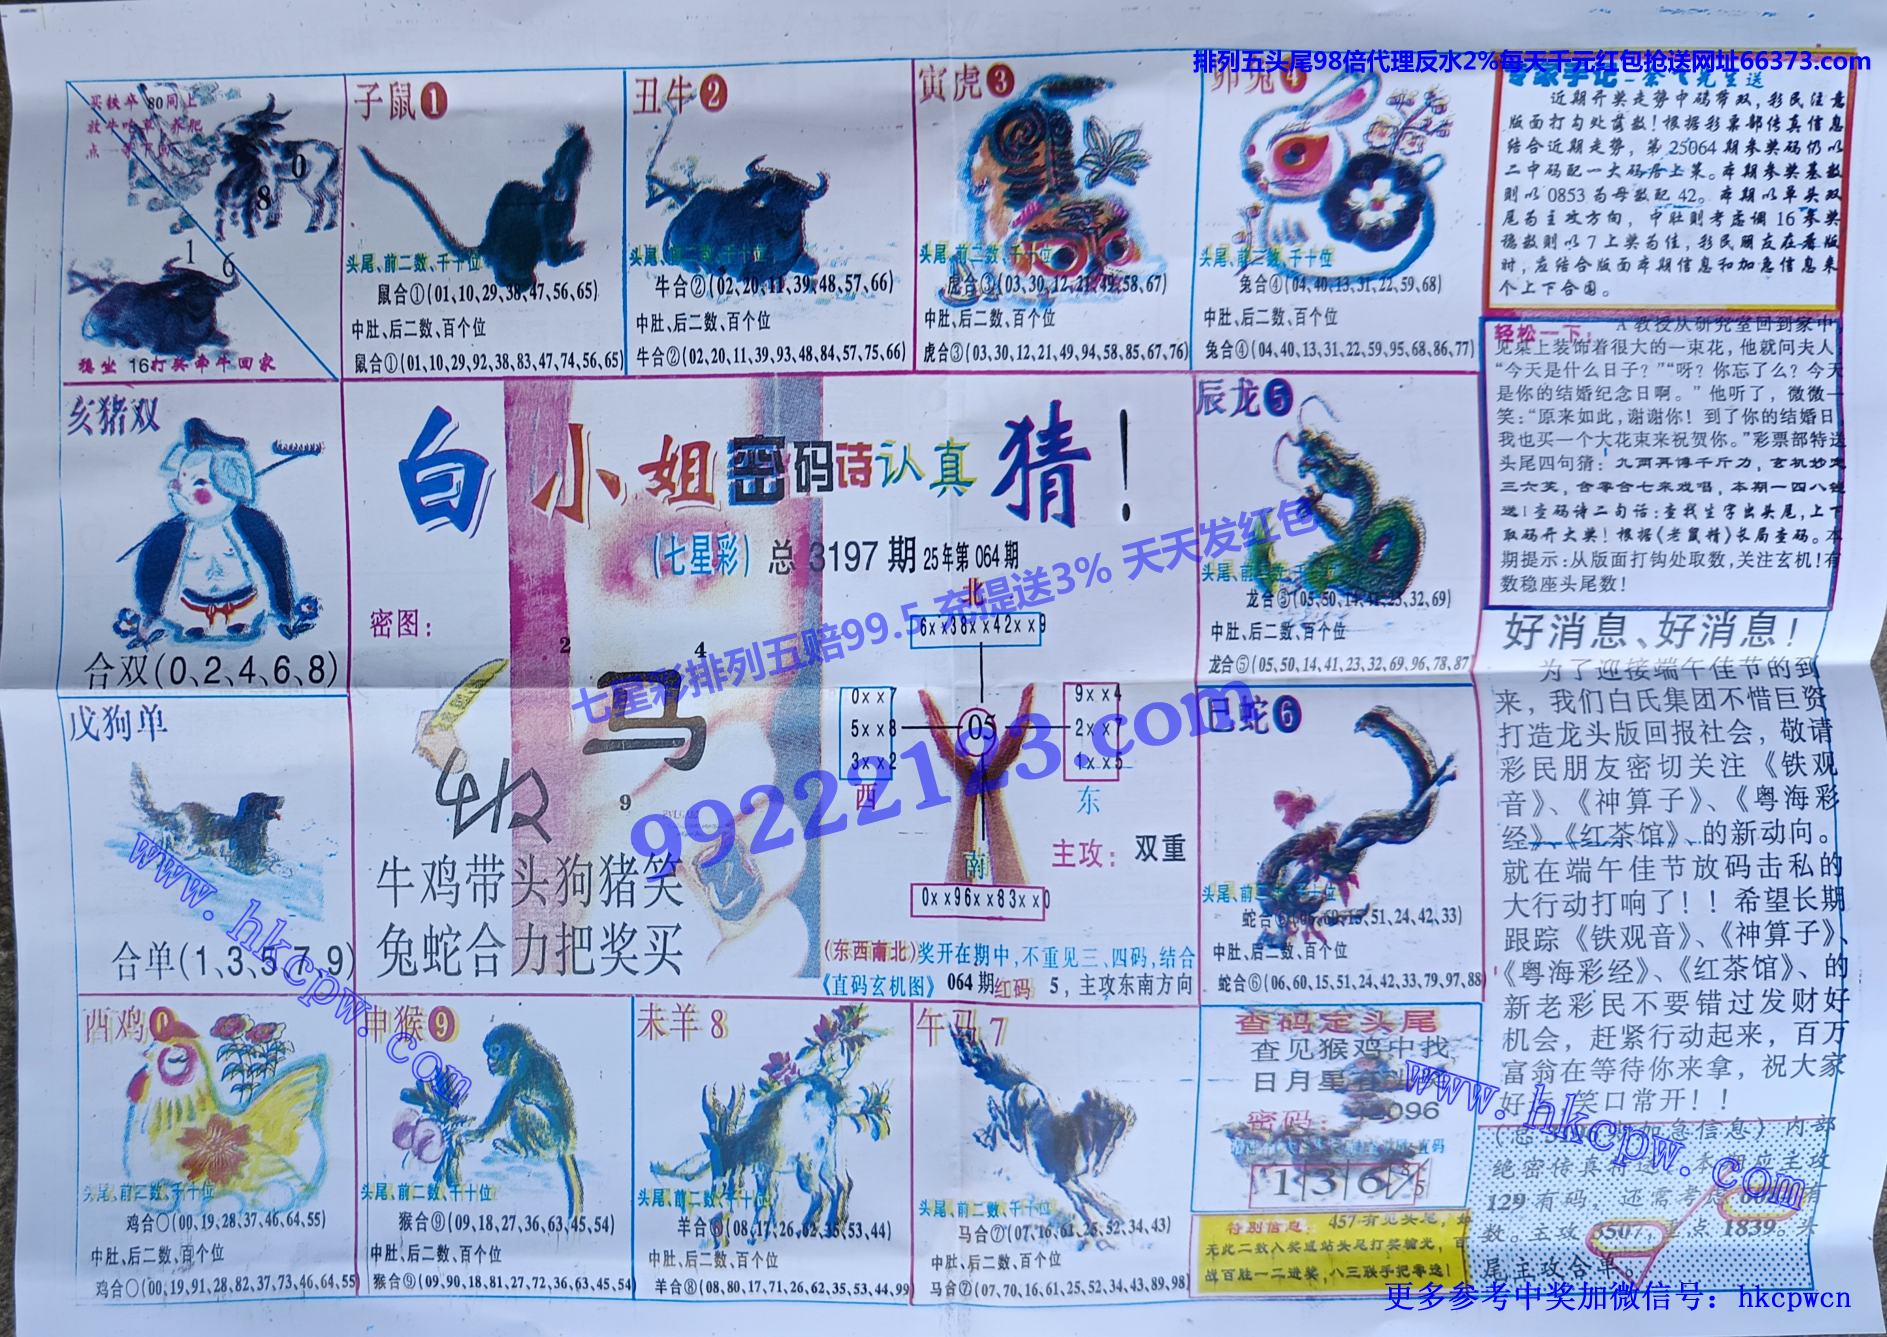 排列五头尾98倍代理反水2%每天千元红包抢送网址66373.com
买铁牛 80同上
放牛吃草 养肥
点
0
8
1 6
稳坐 16打奖牵牛回家
子鼠❶
头尾、前二数、千十位
鼠合①(01,10,29,38,47,56,65)
中肚、后二数、百个位
鼠合①(01,10,29,92,38,83,47,74,56,65)
丑牛❷
头尾、前二数、千十位
牛合②(02,20,11,39,48,57,66)
中肚、后二数、百个位
牛合②(02,20,11,39,93,48,84,57,75,66)
寅虎❸
头尾、前二数、千十位
虎合③(03,30,12,21,49,58,67)
中肚、后二数、百个位
虎合③(03,30,12,21,49,94,58,85,67,76)
卯兔❹
头尾、前二数、千十位
兔合④(04,40,13,31,22,59,68)
中肚、后二数、百个位
兔合④(04,40,13,31,22,59,95,68,86,77)
近期开奖走势中码带双,彩民注意
版面打勾处落数!根据彩票部传真信息
结合近期走势, 第25064期参奖码仍以
二中码配一大码居上策。本期参奖基数
则以0853为母数配42。本期以单头双
尾为主攻方向, 中肚则考虑调16参奖
稳数则以7上奖为佳,彩民朋友在看版
时,应结合版面本期信息和加急信息来
个上下合围。
轻松一下: A教授从研究室回到家中,
见桌上装饰着很大的一束花,他就问夫人,
“今天是什么日子?”“呀?你忘了么?今天
是你的结婚纪念日啊。” 他听了,微微一
笑:“原来如此,谢谢你!到了你的结婚日,
我也买一个大花束来祝贺你。”彩票部特送
头尾四句猜:九两再博千斤力,玄机妙定
三六奖,含零合七来戏唱,本期一四八钱
送!查码诗二句话:查找生字出头尾,上下
取码开大奖!根据《老鼠精》长局查码。本
期提示:从版面打钩处取数,关注玄机!有
数稳座头尾数!
亥猪双
合双(0、2、4、6、8)
戊狗单
合单(1、3、5、7、9)
白小姐密码诗认真猜!
(七星彩) 总 3197 期 25年第 064 期
密图:
2
4
马
9
牛鸡带头狗猪笑
兔蛇合力把奖买
北
6××38××42××9
0××7
5××8
3××2
西
05
9××4
2××7
1××5
东
南
0××96××83××0
主攻: 双重
(东西南北)奖开在期中,不重见三、四码,结合
《直码玄机图》 064期红码 5,主攻东南方向
七星彩排列五赔99.5 充提送3% 天天发红包
99222123.com
辰龙❺
头尾、前二数、千十位
龙合⑤(05,50,14,41,23,32,69)
中肚、后二数、百个位
龙合⑤(05,50,14,41,23,32,69,96,78,87)
巳蛇❻
头尾、前二数、千十位
蛇合⑥(06,60,15,51,24,42,33)
中肚、后二数、百个位
蛇合⑥(06,60,15,51,24,42,33,79,97,88)
好消息、好消息!
为了迎接端午佳节的到
来,我们白氏集团不惜巨资
打造龙头版回报社会,敬请
彩民朋友密切关注《铁观
音》、《神算子》、《粤海彩
经》、《红茶馆》、的新动向。
就在端午佳节放码击私的
大行动打响了!! 希望长期
跟踪《铁观音》、《神算子》、
《粤海彩经》、《红茶馆》、的
新老彩民不要错过发财好
机会, 赶紧行动起来, 百万
富翁在等待你来拿,祝大家
好运,笑口常开!!
酉鸡0
头尾、前二数、千十位
鸡合〇(00,19,28,37,46,64,55)
中肚、后二数、百个位
鸡合〇(00,19,91,28,82,37,73,46,64,55)
申猴❾
头尾、前二数、千十位
猴合⑨(09,18,27,36,63,45,54)
中肚、后二数、百个位
猴合⑨(09,90,18,81,27,72,36,63,45,54)
未羊 8
头尾、前二数、千十位
羊合⑧(08,17,26,62,35,53,44)
中肚、后二数、百个位
羊合⑧(08,80,17,71,26,62,35,53,44,99)
午马 7
头尾、前二数、千十位
马合⑦(07,16,61,25,52,34,43)
中肚、后二数、百个位
马合⑦(07,70,16,61,25,52,34,43,89,98)
查码定头尾
查见猴鸡中找
日月星
密码: 096
136
特别信息: 457看见头尾,如
无此二数入奖速站头尾打奖输光,百
战百胜一二进奖,八三联手把零送!
加急信息) 内部
绝密传真 主攻
129有码。还需考虑
数。主攻 3507,重点 1839。头
尾主攻合单。
www.hkcpw.com
www.hkcpw.com
更多参考中奖加微信号: hkcpwcn